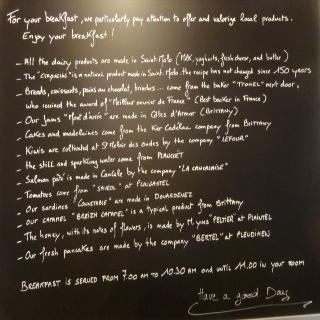 For your breakfast, we particularly pay attention to offer and valorize local products.
Enjoy your breakfast !
- All the dairy products are made in Saint-Malo (Milk, yoghurts, fresh cheese, and butter)
- The "Craquelins" is a natural product made in Saint-Malo. The recipe has not changed since 150 years
- Breads, croissants, pains au chocolat, brioches... come from the baker next door,
who received the award of "Meilleur ouvrier de France" (Best backer in France)
- Our Jams are made in Côtes d'Armor (Brittany)
- Cakes and madeleines come from the Ker Cadélac company from Brittany
- Kiwis are cultivated at St Meloir des ondes by the company "LEFOUR"
- the still and sparkling water come from PLANCOËT
- Salmon is made in Cancale by the company "LA CANCALAISE"
- Tomatoes come from "SAVEOL" at PLOUGASTEL
- Our sardines are made in DOUARDENEZ
- Our caramel "BREIZH CARAMEL" is a typical product from Brittany
- The honey, with its notes of flowers, is made by M. Yves "PELTIER" at PLAINTEL
- Our fresh pancakes are made by the company "BERTEL" at PLEUDIHEN
BREAKFAST IS SERVED FROM 7.00 AM TO 10.30 AM AND UNTIL 11.00 IN YOUR ROOM
Have a good Day